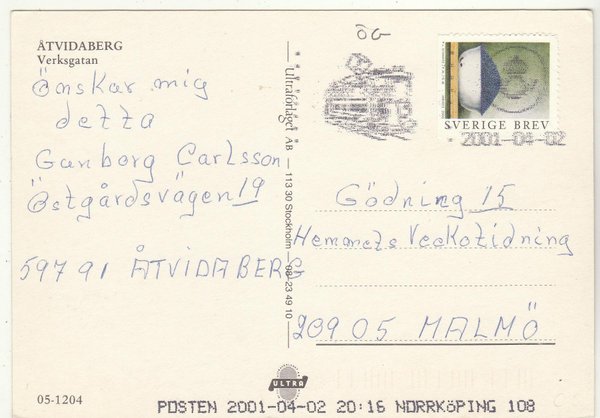 ÅTVIDABERG
Verksgatan
Önskar mig
detta
Gunborg Carlsson
Östgårdsvägen 19
597 91 ÅTVIDABERG
05-1204
Ultraförlaget AB — 113 30 Stockholm — 08-23 49 10
ÖG
SVERIGE BREV
* 2001-04-02
Gödning 15
Hemmets Veckotidning
20905 MALMÖ
ULTRA
POSTEN 2001-04-02 20:16 NORRKÖPING 108